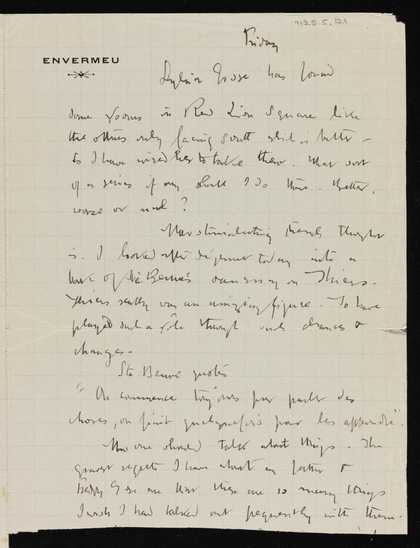 7125.5.121
Friday
ENVERMEU
Sylvia Gosse has found
some rooms in Red Lion Square like
the others only facing south which is better –
so I have wired her to take them. What sort
of a series if any shall I do there. Better,
worse or ?
French thought
is. I looked after déjeuner today into a
of Ste Beuve's essay on Thiers.
Thiers really was an amazing figure. To have
played such a rôle through such chances &
changes.
Ste Beuve quotes
"On commence toujours par parler des
choses, on finit quelquefois par les apprendre".
How one should talk about things. The
gravest regrets I have about my father &
are that there are so many things
I wish I had talked out frequently with them.